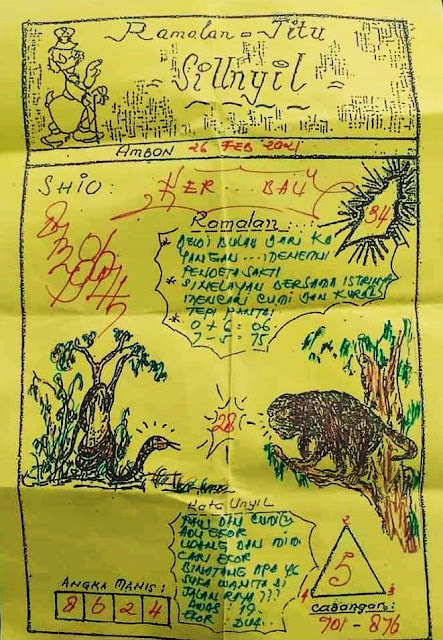 Ramalan = Titu
= SiUnyil =
AMBON 26 FEB 2021
SHIO :
34
Ramalan :
* DEWI BULAN DARI KA
YANGAN ... MENEMUI
PENDETA SAKTI
* SI NELAYAN BERSAMA ISTRINYA
MENCARI CUMI DAN KURA2
TEPI PANTAI
0 + 6 = 06
7 - 5 = 75
28
Kata Unyil
ADU EKOR
UDANG DAN MIMI
CARI EKOR
BINATANG APA YG
SUKA WANITA DI
JALAN RAYA ???
AWAS : 19.
EKOR : DUA..
ANGKA MANIS :
8 6 2 4
2
5
4 3
CABANGAN :
901 - 876